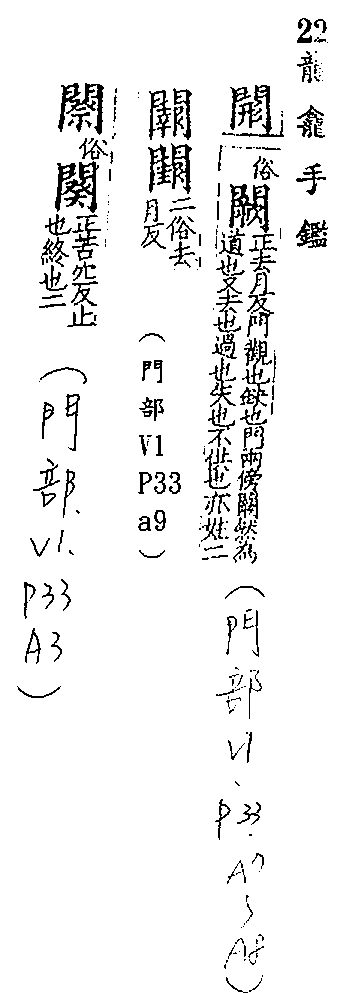 22龍龕手鑑
俗闕正去月反門觀也缺也門兩傍闕然為
道也又去也過也失也不供也亦姓二
二俗去
月反
(門部V1.P33.A7、A8)
(門部V1P33a9)
俗闋正苦穴反止
也終也二
(門部.V1.P33A3)